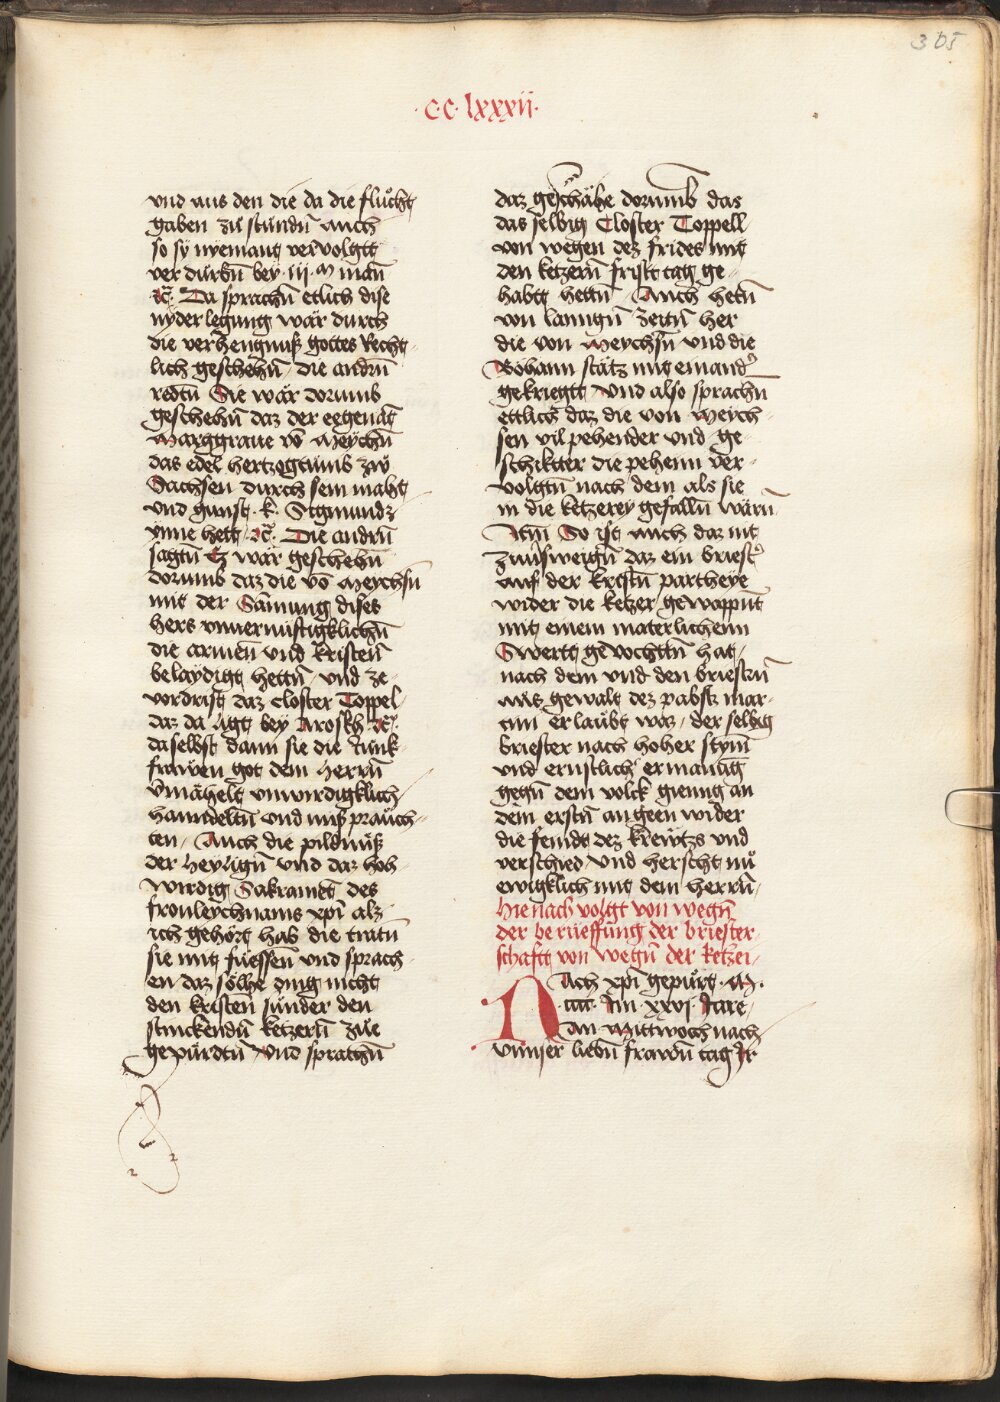 305
·c·c·lxxxij·
vnd aus den die da die flu̇cht
gaben zu̇ stundn̄ auch
so sy nyemant vervolgtt
ver durbn̄ bey ·iij· ᴍ man̄
ꝛc̄. Da sprachn̄ etlich dise
nyder legung wär durch
die verhengnuß gottes Recht
lich geschehn̄ / die andrn̄
redtn̄ Sie wär dorumb
geschehn̄ daz der egenāt
Marggraue vō Meychn̄
das edel hertzogtumb zẇ
Sachsen durch sein maht
vnd gunst · k̇ · Sigmundz
ynne hett ꝛc̄. Die andrn̄
sagtn̄ Ez wär geschehn̄
dorumb daz die vō Meychsn̄
mit der Sāmung dises
hers vnuernuftigklichn̄
die armen̄ vnd kristen̄
belaydigt hettn̄ / vnd ze
vordrist daz closter Toppel
daz da ligt bey Aroskh ꝛc̄.
daselbst dann sie die Junk
frawen got dem herrn̄
v̄mähelt vnwirdigklich
hanndeltn̄ vnd miß prau̇ch
ten / Auch die pildnu̇ß
der heylign̄ vnd daz hoh
wirdig Sakramēt des
fronleychnams xp̄i alz
ich gehört hab die tratn̄
sie mit fu̇essen vnd sprach
en daz sölhe ding nicht
den kristen̄ su̇nder den
stinckendn̄ ketzern̄ zu̇e
gepu̇rdtn̄ Vnd sprachn̄
daz geschähe dorumb das
das selbig Closter Toppell
von wegen dez frides mit
den ketzern̄ fristt tag ge
habtt hettn̄ / Auch hetn̄
von lanngn̄ zeitn̄ her
die von Meychsn̄ vnd die
Böhann stätz mit einandˀ
gekriegtt vnd also sprachn̄
ettlich daz die von Meych
sen vil pehender vnd ge
schiktter die pehenn ver
volgtn̄ nach dem als sie
in die ketzerey gefalln̄ wärn̄
Itm̄ So ist auch daz nit
zuuersweign̄ daz ein briestˀ
auf der kristn̄ partheye
wider die ketzer gewappn̄t
mit einem materlichenn
Swertt gevochttn̄ hat
nach dem vnd den briestrn̄
aus gewalt dez pabsts mar
tini erlaubt waz / der selbig
briester nach hoher stym̄
vnd ernstlicher manūg
gegn̄ dem volck gieng an
dem erstn̄ an geen wider
die feindt dez krewtzs vnd
verschied vnd herscht nu̇
ewigklich mit dem herrn̄
hienach volgt von wegn̄
der berüeffung der briester
schafft von wegn̄ der ketzei
Nach xp̄i gepu̇rt · M ·
·cccc· Im · xxvj · Jare
An Mittwoch nach
vnnser liebn̄ frawn̄ tag Ir